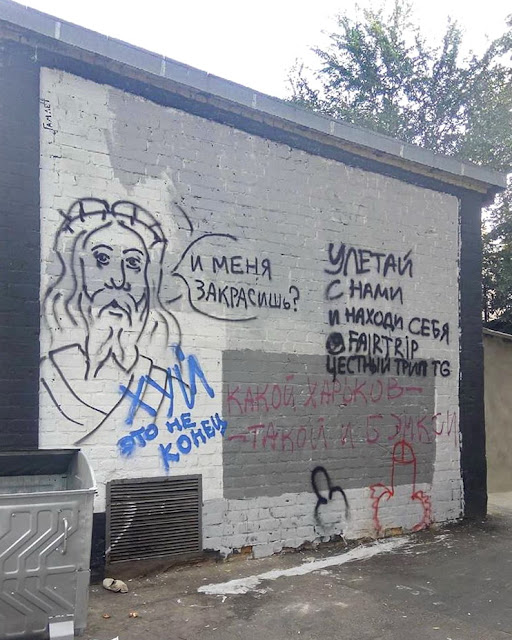 Гамлет
И МЕНЯ
ЗАКРАСИШЬ?
УЛЕТАЙ
С НАМИ
И НАХОДИ СЕБЯ
@FAIRTRIP
ЧЕСТНЫЙ ТРИП TG
ХУЙ
ЭТО НЕ
КОНЕЦ
КАКОЙ ХАРЬКОВ-
-ТАКОЙ И БЭМКСИ